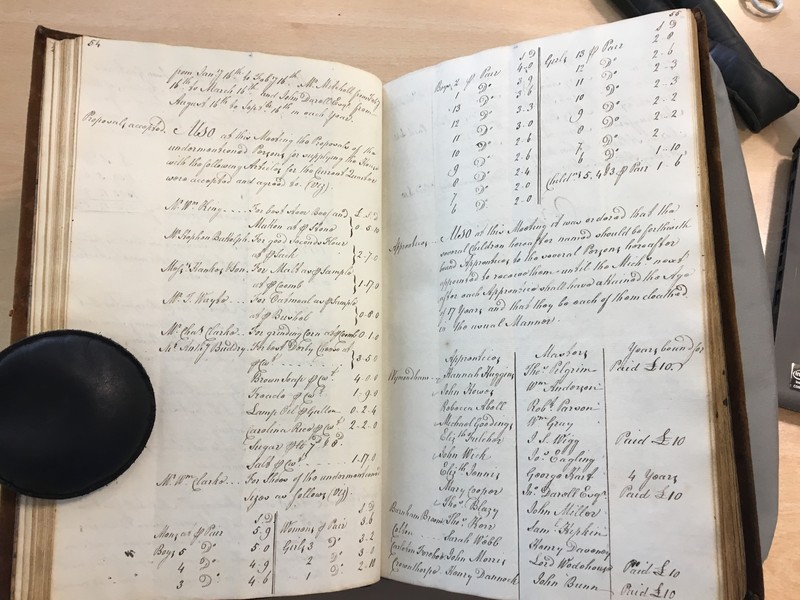 54
from Jany 16th to Feby 16th Mr Mitchell from Feby
16th to March 16th and John Darell Esqr from
August 16th to Septr 16th in each Year.
Proposals accepted. Also at this Meeting the Proposals of the
undermentioned Persons for supplying the House
with the following Articles for the Current Quarter
were accepted and agreed to (Viz)
£ S D
Mr Wm King For best Stow Beef and
Mutton at ⅌ Stone 0..5..10
Mr Stephen Buttolph For good Seconds Flour
at ⅌ Sack 2..7..0
Messrs & Son For Meal as ⅌ Sample
at ⅌ Coomb 1..17..0
Mr J. Wayte For Oatmeal as ⅌ Sample
at ⅌ Bushel 0..8..0
Mr Chas Clarke For grinding Corn at ⅌ Coomb 0..1..0
Mr For best Derby Cheese at
⅌ Cwt 3..5..0
Brown Soap ⅌ Cwt 4..0..0
Treacle ⅌ Cwt 1..9..0
Lamp Oil ⅌ Gallon 0..2..4
Carolina Rice ⅌ Cwt 2..2..0
Sugar ⅌ lb 7d & 8d
Salt ⅌ Cwt 1..17..0
Mr Wm Clarke For Shoes of the undermentioned
Sizes as follows (Viz)
S D S D
Mens at ⅌ Pair 5..9 Womens ⅌ Pair 3..6
Boys 5 Do 5..0 Girls 3 Do 3..2
4 Do 4..9 2 Do 3..0
3 Do 4..6 1 Do 2..10
55
S D S D
Boys 2 ⅌ Pair 4..0 Girls 13 ⅌ Pair 2..8
1 Do 3..9 12 Do 2..6
13 Do 3..6 11 Do 2..3
12 Do 3..3 10 Do 2..3
11 Do 3..0 9 Do 2..2
10 Do 2..8 8 Do 2..2
9 Do 2..6 7 Do 2
8 Do 2..4 6 Do 1..10
7 Do 2..0 Childns 5, 4 & 3 ⅌ Pair 1..6
6 Do 2..0
Apprentices Also at this Meeting it was ordered that the
several Children hereafter named should be forthwith
bound Apprentices to the several Persons hereafter
appeared to receive them until the Michs next
after each Apprentice shall have attained the Age
of 17 Years and that they be each of them cloathed
in the usual Manner.
Apprentices Masters Years bound for
Wymondham Hannah Huggins Thos Pilgrim Paid £10
John Howes Wm Anderson
Rebecca Abell Robt Parson
Michael Gooding Wm Gray
Elizth J. S. Wigg Paid £10
John Weck Jos Eagling
Elizth Jennis George Hart 4 Years
Mary Cooper Jn Darell Esqr Paid £10
Thos Blazy John Miller
Barnham Broom Thos Kerr Saml Hipkin
Colton Sarah Webb Henry
Carleton Forehoe John Morris Lord Wodehouse Paid £10
Crownthorpe Henry Dannock John Bunn Paid £10